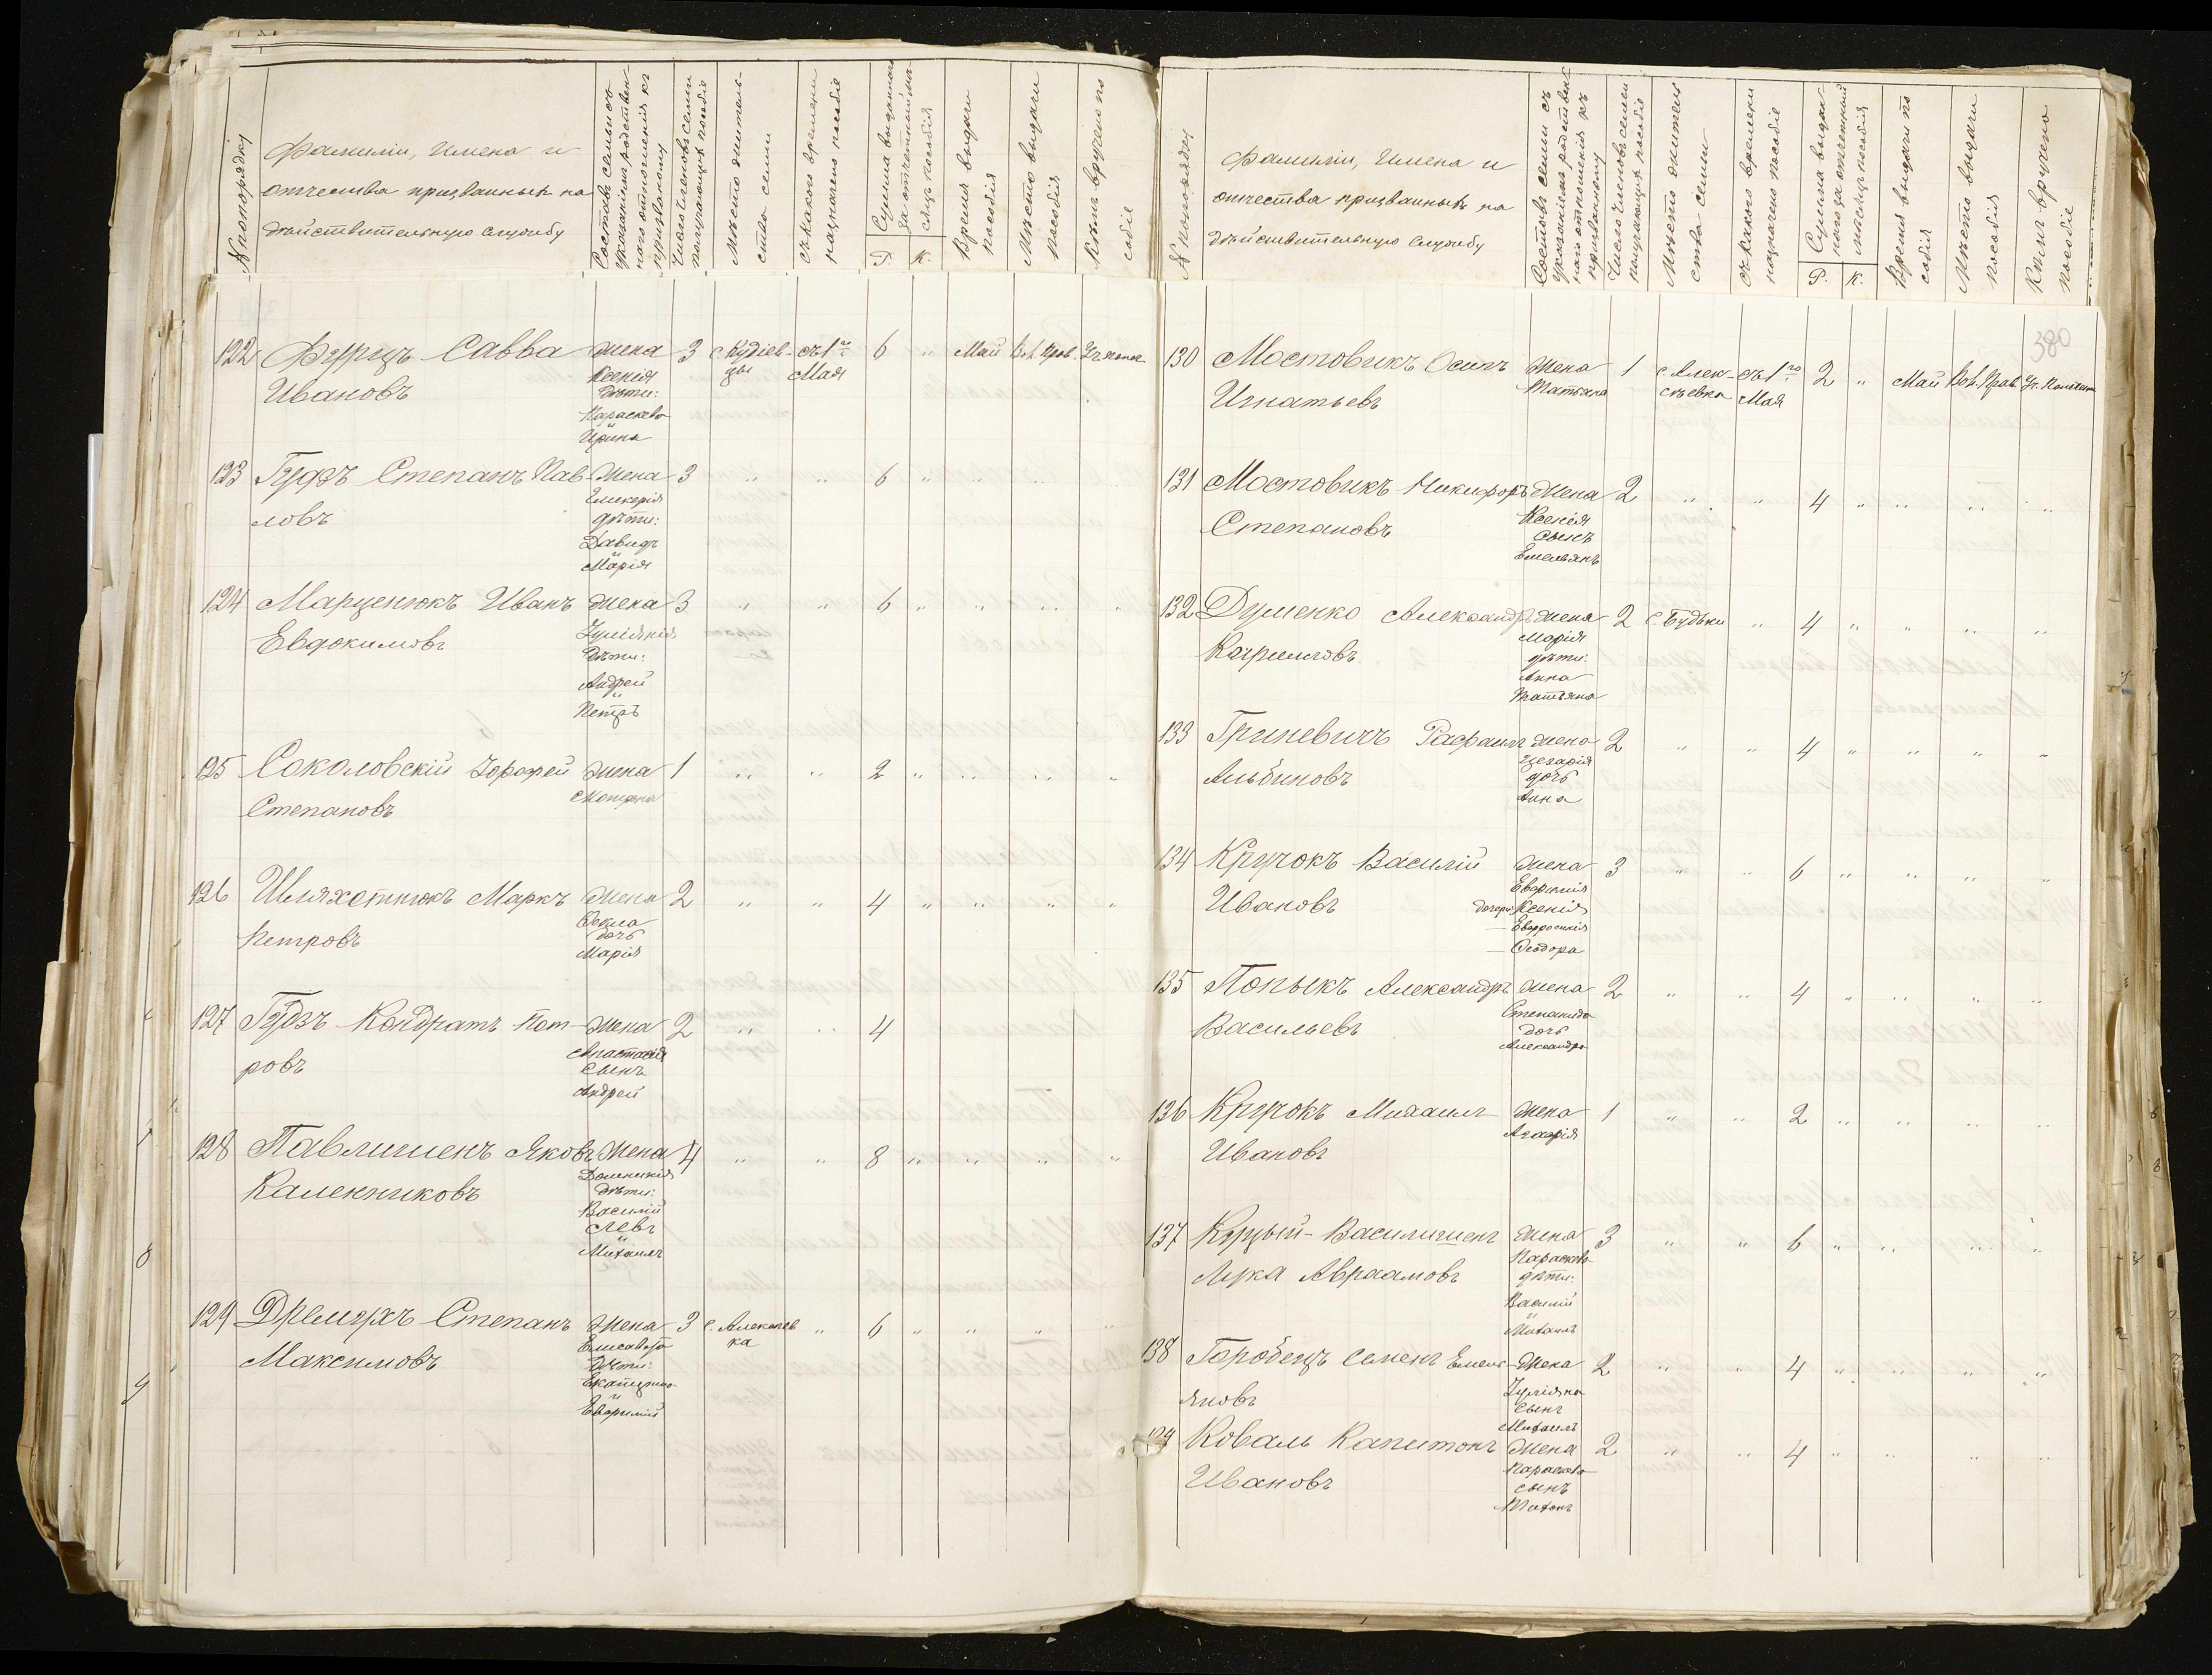 № по порядку
Фамиліи, имена и
отчества призванныхъ на
дѣйствительную службу
Составъ семьи съ
указаніемъ родствен-
наго отношенія къ
призванному
Число членовъ семьи
получающихъ пособіе
Мѣсто житель-
ства семьи
Съ какого времени
назначено пособіе
Сумма выданнаго
за отчетный мѣ-
сяцъ пособія
Р. К.
Время выдачи
пособія
Мѣсто выдачи
пособія
Кѣмъ вручено по
собіе
122 Савва жена 3 с. Кудіев- съ 1го 6 " Май Вол. Прав.
Ивановъ Ксенія цы Мая
дѣти:
Параскева
и
Ирина
123 Гудзъ Степанъ Пав- жена 3 " " 6 " "
ловъ
дѣти:
Давидъ
и
Марія
124 Марценюкъ Иванъ жена 3 " " 6 " " " "
Евдокимовъ Іуліянія
Дѣти:
Андрей
и
Петръ
125 Соколовскій Дорофей жена 1 " " 2 " " " "
Степановъ Матрона
126 Шляхетнюкъ Маркъ жена 2 " " 4 " " " "
Петровъ Фекла
дочь
Марія
127 Гудзъ Кондратъ Пет- жена 2 " " 4
ровъ Анастасія
сынъ
Андрей
128 Павлишенъ Яковъ жена 4 " " 8 " " " "
Каленниковъ Домникія
дѣти:
Василій
Левъ
и
Михаилъ
129 Степанъ жена 3 с. Алексѣев " 6 " " " "
Максимовъ Елисавета ка
дѣти:
Екатерина
и
Евфимій
№ по порядку
Фамиліи, Имена и
отчества призванныхъ на
дѣйствительную службу
Составъ семьи съ
указаніемъ родствен-
наго отношенія къ
призванному
Число членовъ семьи
получающихъ пособіе
Мѣсто житель
ства семьи
Съ какого времени
назначено пособіе
Сумма выдан-
наго за отчетный
мѣсяцъ пособія
Р. К.
Время выдачи по
собія
Мѣсто выдачи
пособія
Кѣмъ вручено
пособіе
380
130 Мостовикъ Осипъ жена 1 с. Алек- съ 1го 2 " Май Вол. Прав.
Игнатьевъ Татьяна сѣевка Мая
131 Мостовикъ Никифоръ жена 2 " " 4 " " " "
Степановъ Ксенія
сынъ
Емельянъ
132 Думенко Александръ жена 2 с. Будьки " 4 " " " "
Марія
дѣти:
Анна
Татьяна
133 Гриневичъ Рафаилъ жена 2 " " 4 " " " "
Альбиновъ Цезарія
дочь
Анна
134 Кручокъ Василій жена 3 " " 6 " " " "
Ивановъ Евфимія
дочери: Ксенія
— Евфросинія
— Феодора
135 Попыкъ Александръ жена 2 " " 4 " " " "
Васильевъ Степанида
дочь
Александра
136 Кручокъ Михаилъ жена 1 " " 2 " " " "
Ивановъ Агафія
137 Куцый-Василишенъ жена 3 " " 6 " " " "
Лука Авраамовъ Параскева
дѣти:
Василій
и
Михаилъ
138 Горобецъ Семенъ Емель- жена 2 " " 4 " " " "
яновъ Іуліяна
сынъ
Михаилъ
139 Коваль Капитонъ жена 2 " " 4 " " " "
Ивановъ Параскева
сынъ
Тихонъ